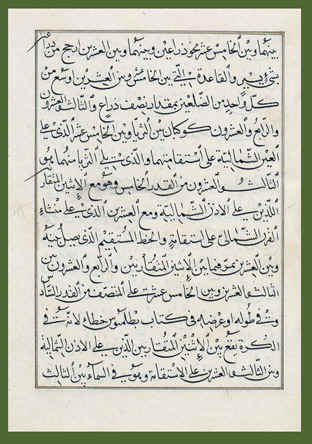 بينهما وبين الخامس عشر نحو ذراعين وبينهما وبين العشرين ارجح من ذراع
بشئ يسير والقاعدة التى بين الخامس عشر وبين العشرين اوسع من
كل واحد من الضلعين بمقدار نصف ذراع والثالث والعشرون
والرابع والعشرون كوكبان بين الثريا وبين الخامس عشر الذى على
العين الشمالية على استقامتهما والذى يلى الثريا منهما هو
الثالث والعشرون من القدر الخامس وهو مع الاثنين المتقاربين
اللذين على الاذن الشمالية ومع العشرين الذى على منشاء
القرن الشمالى على استقامة والخط المستقيم الذى يصل بينه
وبين العشرين يمر فيما بين الاثنين المتقاربين والرابع والعشرون بين
الثالث والعشرين وبين الخامس عشر على المنتصف من القدر السادس
وقع فى طوله وعرضه فى كتاب بطلميوس خطاء لانه وقع فى
الكرة يقع بين الاثنين المتقاربين الذين على الاذن الشمالية
وبين الثالث والعشرين على الاستقامة وهو فى السماء بين الثالث